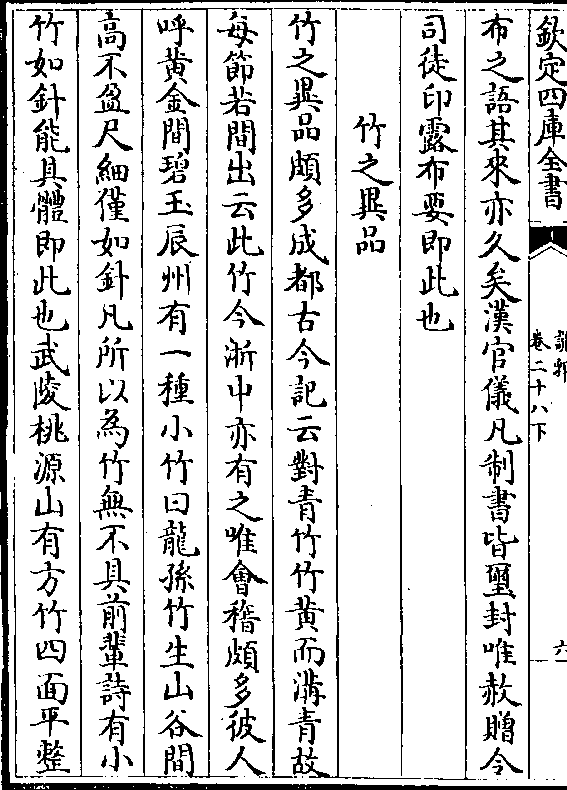 欽定四庫全書
說郛
卷二十八下
六
布之語其來亦久矣漢官儀凡制書皆璽封唯赦贈令
司徒印露布要即此也
竹之異品
竹之異品頗多成都古今記云對青竹竹黃而溝青故
每節若間出云此竹今浙中亦有之唯會稽頗多彼人
呼黃金間碧玉辰州有一種小竹曰龍孫竹生山谷間
高不盈尺細僅如針凡所以為竹無不具前輩詩有小
竹如針能具體即此也武陵桃源山有方竹四面平整